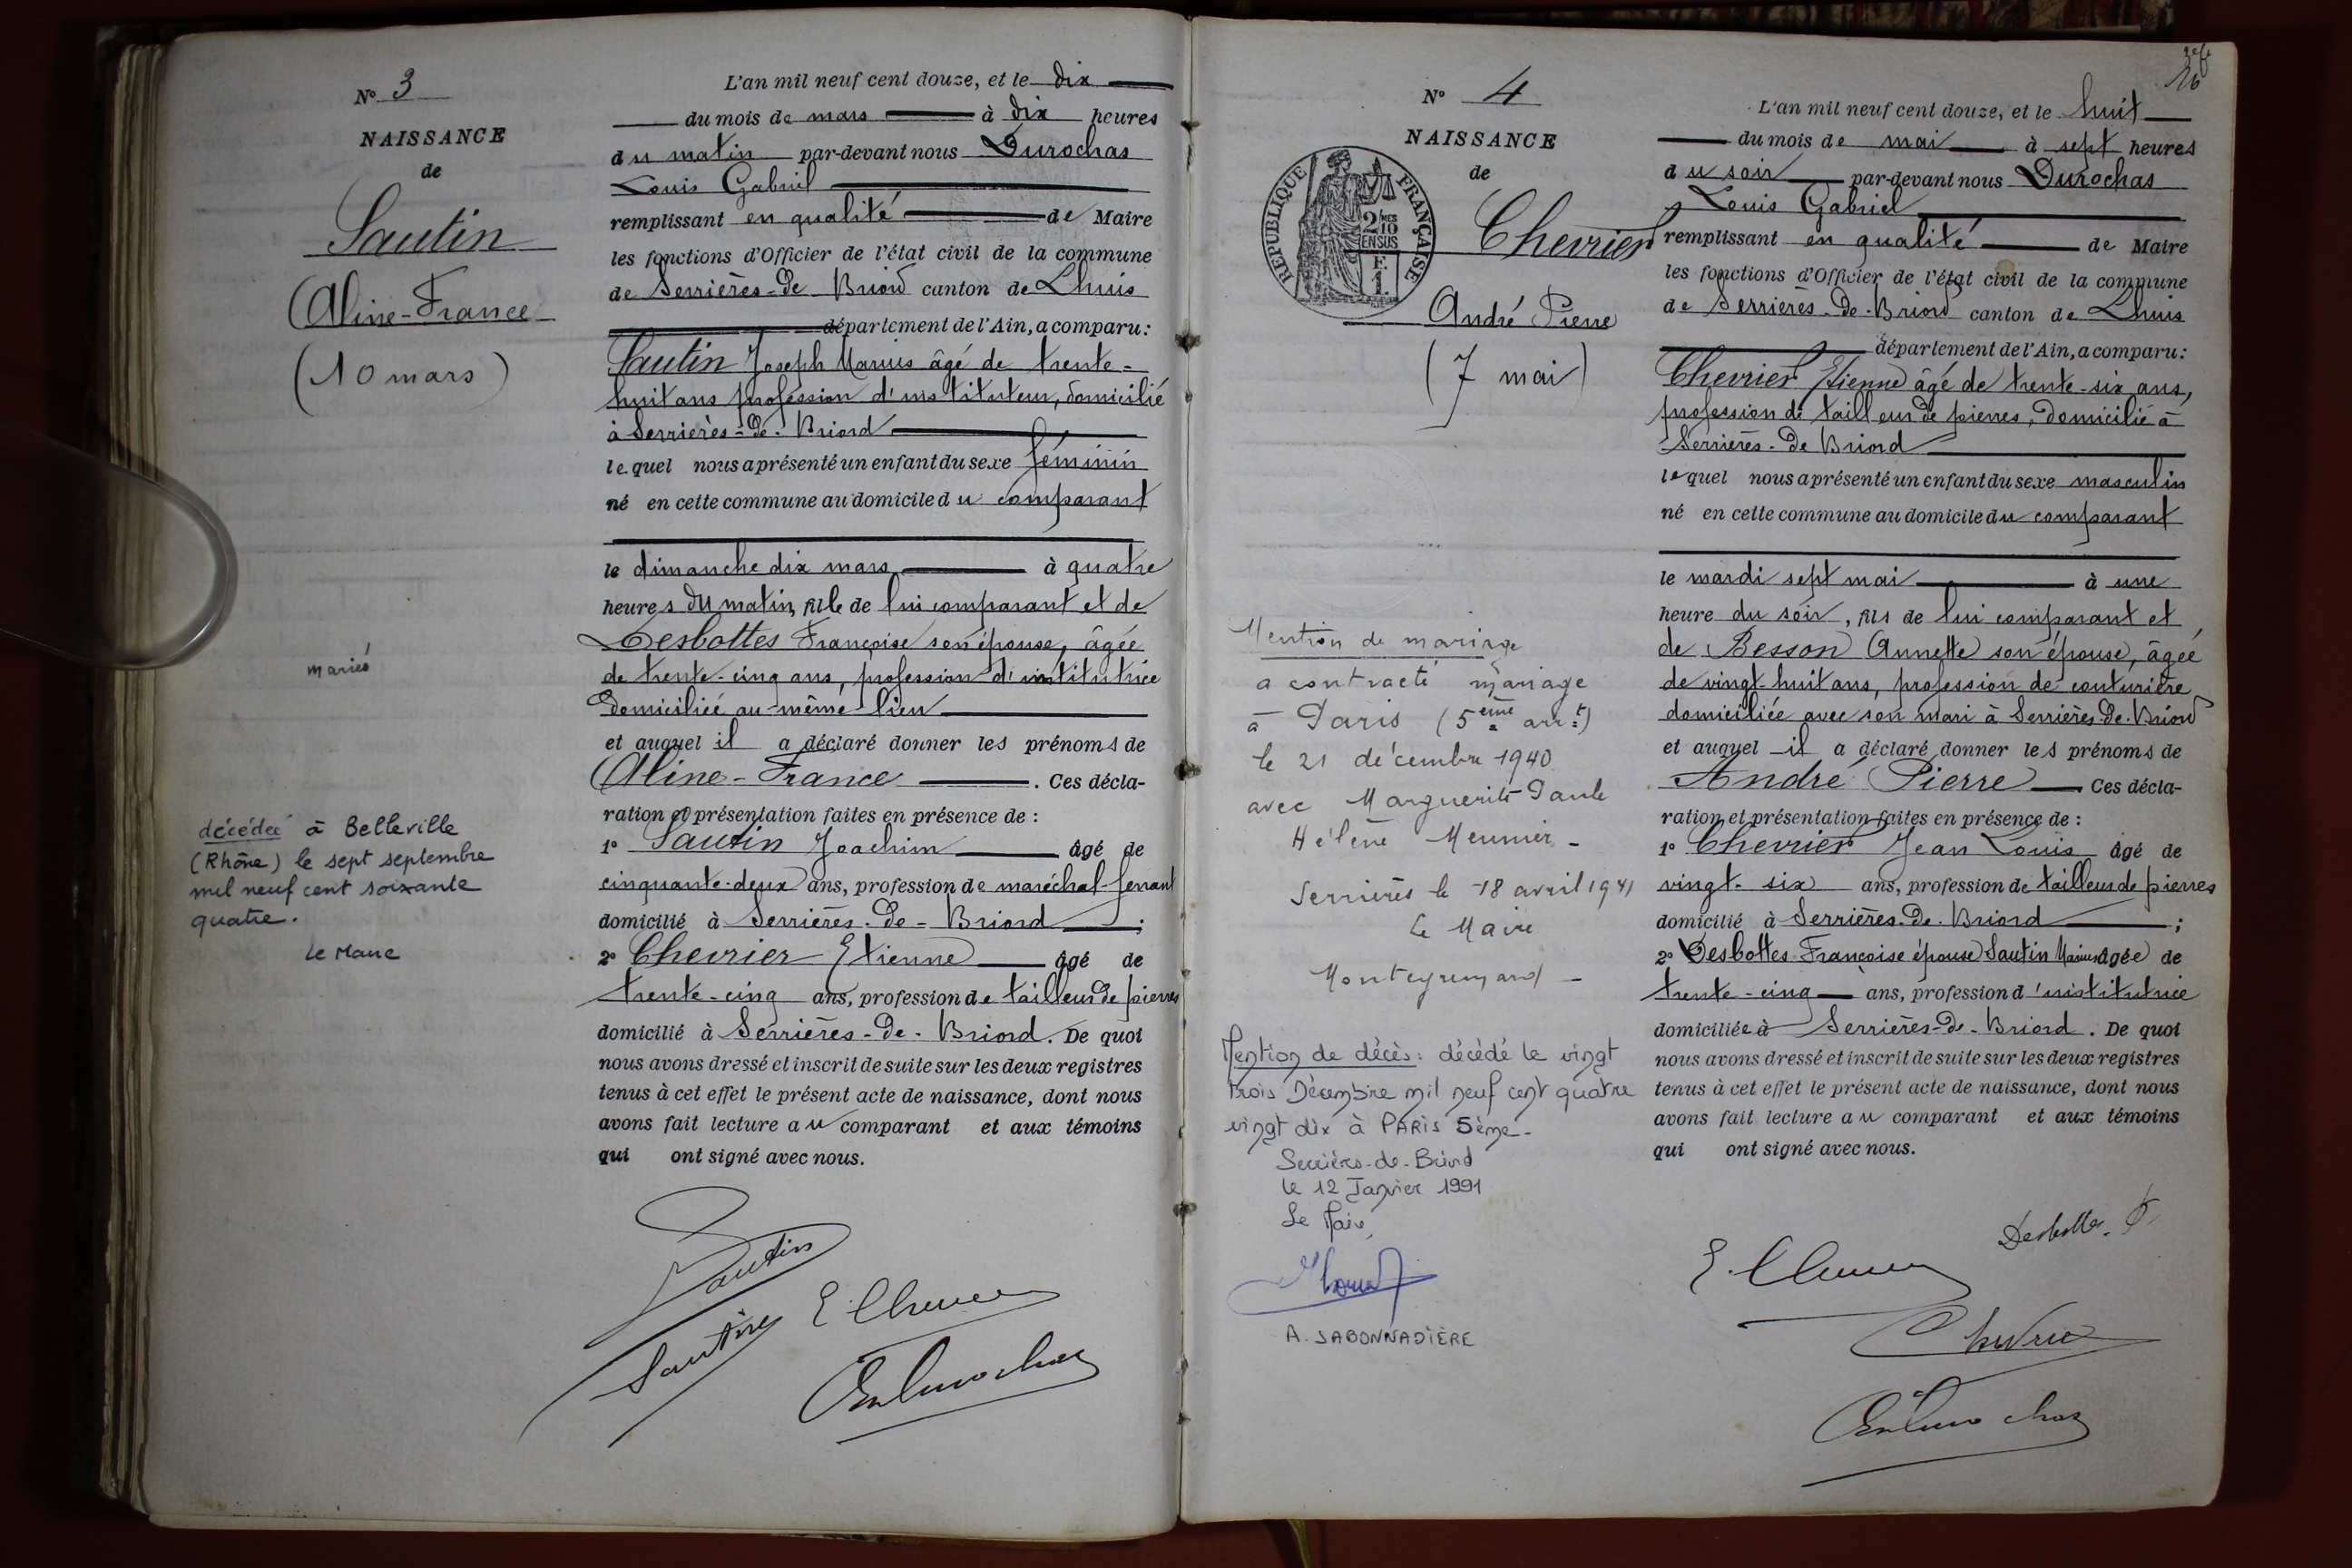 N° 3
NAISSANCE
de
Sautin
Aline-France
(10 mars)
mariés
décédée à Belleville
(Rhône) le sept septembre
mil neuf cent soixante
quatre.
Le Maire
L'an mil neuf cent douze, et le dix
du mois de mars à dix heures
du matin par-devant nous Durochas
Louis Gabriel
remplissant en qualité de Maire
les fonctions d'Officier de l'état civil de la commune
de Serrières-de Briord canton de Lhuis
département de l'Ain, a comparu :
Sautin Joseph Marius âgé de trente-
huit ans profession d'instituteur, domicilié
à Serrières-de-Briord
lequel nous a présenté un enfant du sexe féminin
né en cette commune au domicile du comparant
le dimanche dix mars à quatre
heures du matin, fille de lui comparant et de
Desbottes Françoise son épouse, âgée
de trente-cinq ans, profession d'institutrice
domiciliée au même lieu
et auquel il a déclaré donner les prénoms de
Aline-France . Ces décla-
ration et présentation faites en présence de :
1° Sautin Joachim âgé de
cinquante-deux ans, profession de maréchal-ferrant
domicilié à Serrières-de-Briord ;
2° Chevrier Etienne âgé de
trente-cinq ans, profession de tailleur de pierres
domicilié à Serrières-de-Briord. De quoi
nous avons dressé et inscrit de suite sur les deux registres
tenus à cet effet le présent acte de naissance, dont nous
avons fait lecture au comparant et aux témoins
qui ont signé avec nous.
Sautin
Sautin
E Chevrier
Durochas
N° 4
NAISSANCE
de
RÉPUBLIQUE FRANÇAISE
2/10
EN SUS
F.
1.
Chevrier
André Pierre
(7 mai)
Mention de mariage
a contracté mariage
à Paris (5ème arrt)
le 21 décembre 1940
avec Marguerite Paule
Hélène Meunier -
Serrières le 18 avril 1941
Le Maire
Mention de décès : décédé le vingt
trois Décembre mil neuf cent quatre
vingt dix à PARIS 5ème.
Serrières-de-Briord
le 12 Janvier 1991
Le Maire,
A. SABONNADIÈRE
16
L'an mil neuf cent douze, et le huit
du mois de mai à sept heures
du soir par-devant nous Durochas
Louis Gabriel
remplissant en qualité de Maire
les fonctions d'Officier de l'état civil de la commune
de Serrières-de-Briord canton de Lhuis
département de l'Ain, a comparu :
Chevrier Etienne âgé de trente-six ans,
profession de tailleur de pierres, domicilié à
Serrières-de Briord
lequel nous a présenté un enfant du sexe masculin
né en cette commune au domicile du comparant
le mardi sept mai à une
heure du soir, fils de lui comparant et
de Besson Annette son épouse, âgée
de vingt-huit ans, profession de couturière
domiciliée avec son mari à Serrières-de-Briord
et auquel il a déclaré donner les prénoms de
André Pierre Ces décla-
ration et présentation faites en présence de :
1° Chevrier Jean Louis âgé de
vingt-six ans, profession de tailleur de pierres
domicilié à Serrières-de-Briord ;
2° Desbottes Françoise épouse Sautin Marius âgée de
trente-cinq ans, profession d'institutrice
domiciliée à Serrières-de-Briord. De quoi
nous avons dressé et inscrit de suite sur les deux registres
tenus à cet effet le présent acte de naissance, dont nous
avons fait lecture au comparant et aux témoins
qui ont signé avec nous.
Desbottes. F
E. Chevrier
Chevrier
Durochas